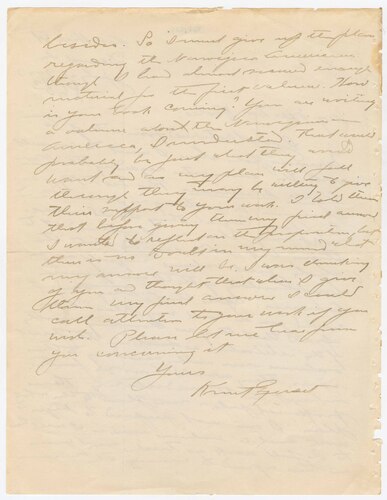 besides. So I must give up the plan
regarding the Norwegian Americans
though I had almost secured enough
material for the first volume. How
is your book coming? You are writing
a volume about the Norwegian-
Americans, I understand. That would
probably be just what they would
want and as my plan will fall
through they may be willing to give
their support to your work. I told them
that before giving them my final answer
I wanted to reflect on the matter, but
there is no doubt in my mind what
my answer will be. I was thinking
of you and thought that when I give
them my final answer I could
call attention to your work if you
wish. Please let me hear from
you concerning it
Yours
Knut Gjerset